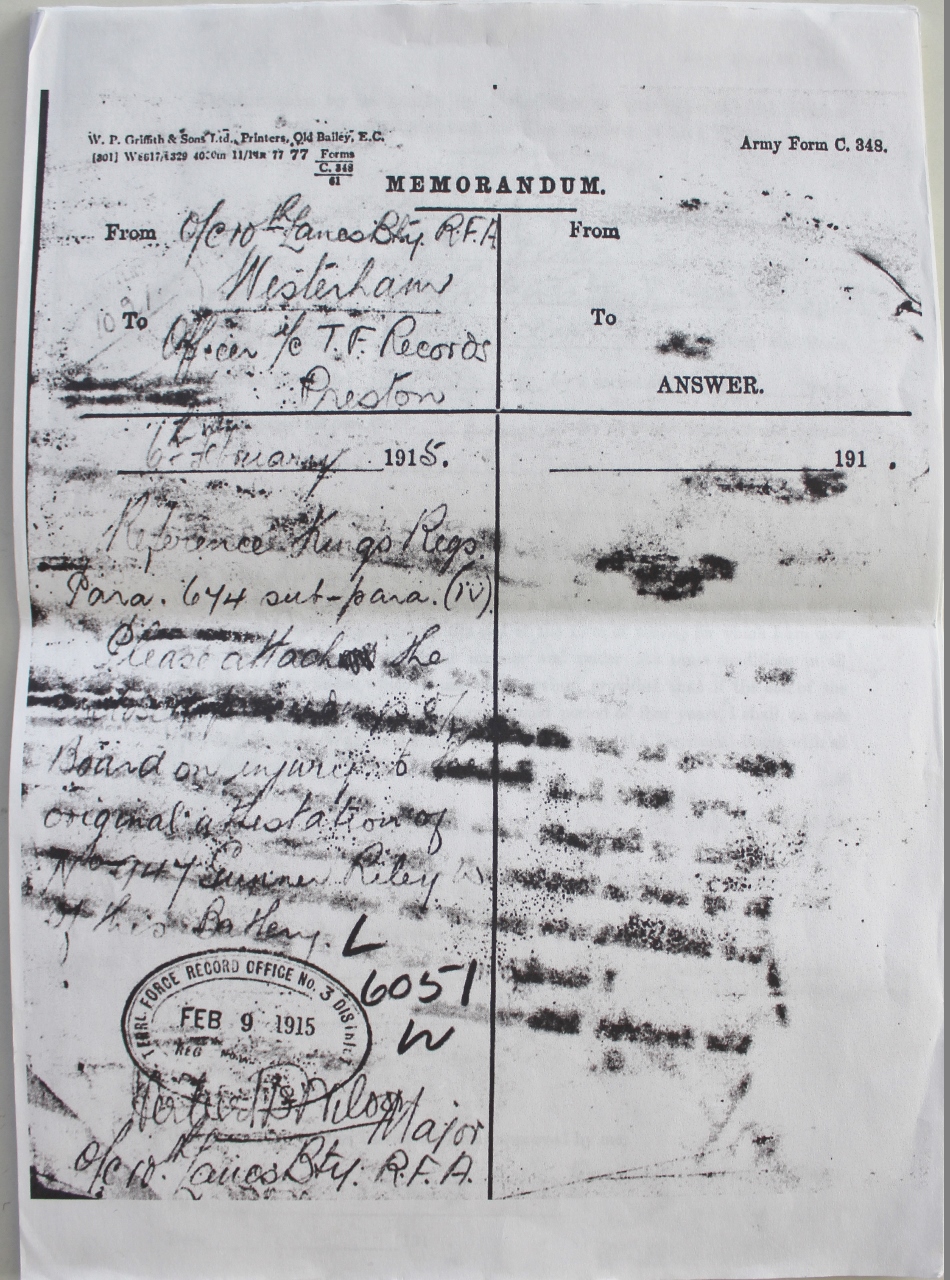 W. P. Griffith & Sons Ltd., Printers, Old Bailey, E.C.
Forms
C. 348
61
Army Form C. 348.
MEMORANDUM.
From O/C 10th Lancs Bty. R.F.A
Westerham
To Officer i/c T.F. Records
Preston
6th February 1915.
Reference King's Regs.
Para. 674 sub-para. (iv)
Please attach the
Board on injury to
original attestation of
No 947 Gunner Riley W
of this Battery.
L
6051
W
TERRL FORCE RECORD OFFICE No. 3 DIST
FEB 9 1915
Major
O/C 10th Lancs Bty. R.F.A.
From
To
ANSWER.
191 .